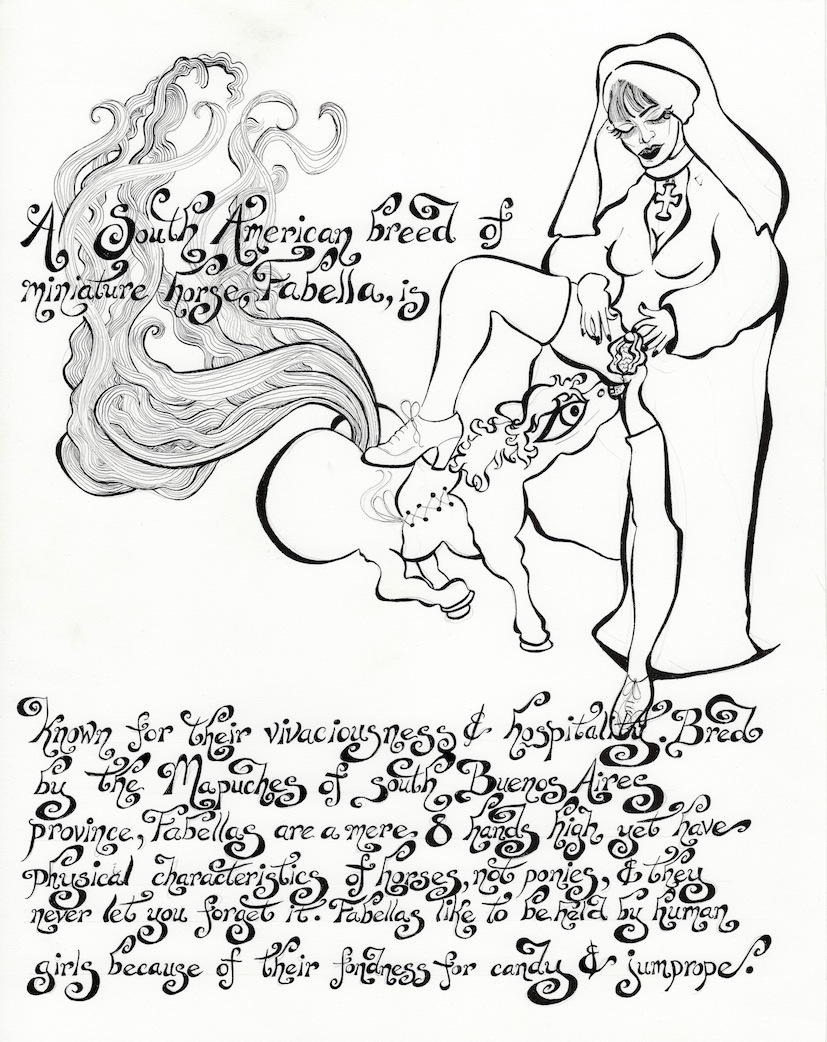 A South American breed of
miniature horse, Fabella, is
Known for their vivaciousness & hospitality. Bred
by the Mapuches of south Buenos Aires
province, Fabellas are a mere 8 hands high yet have
physical characteristics of horses, not ponies, & they
never let you forget it. Fabellas like to be held by human
girls because of their fondness for candy & jumprope.